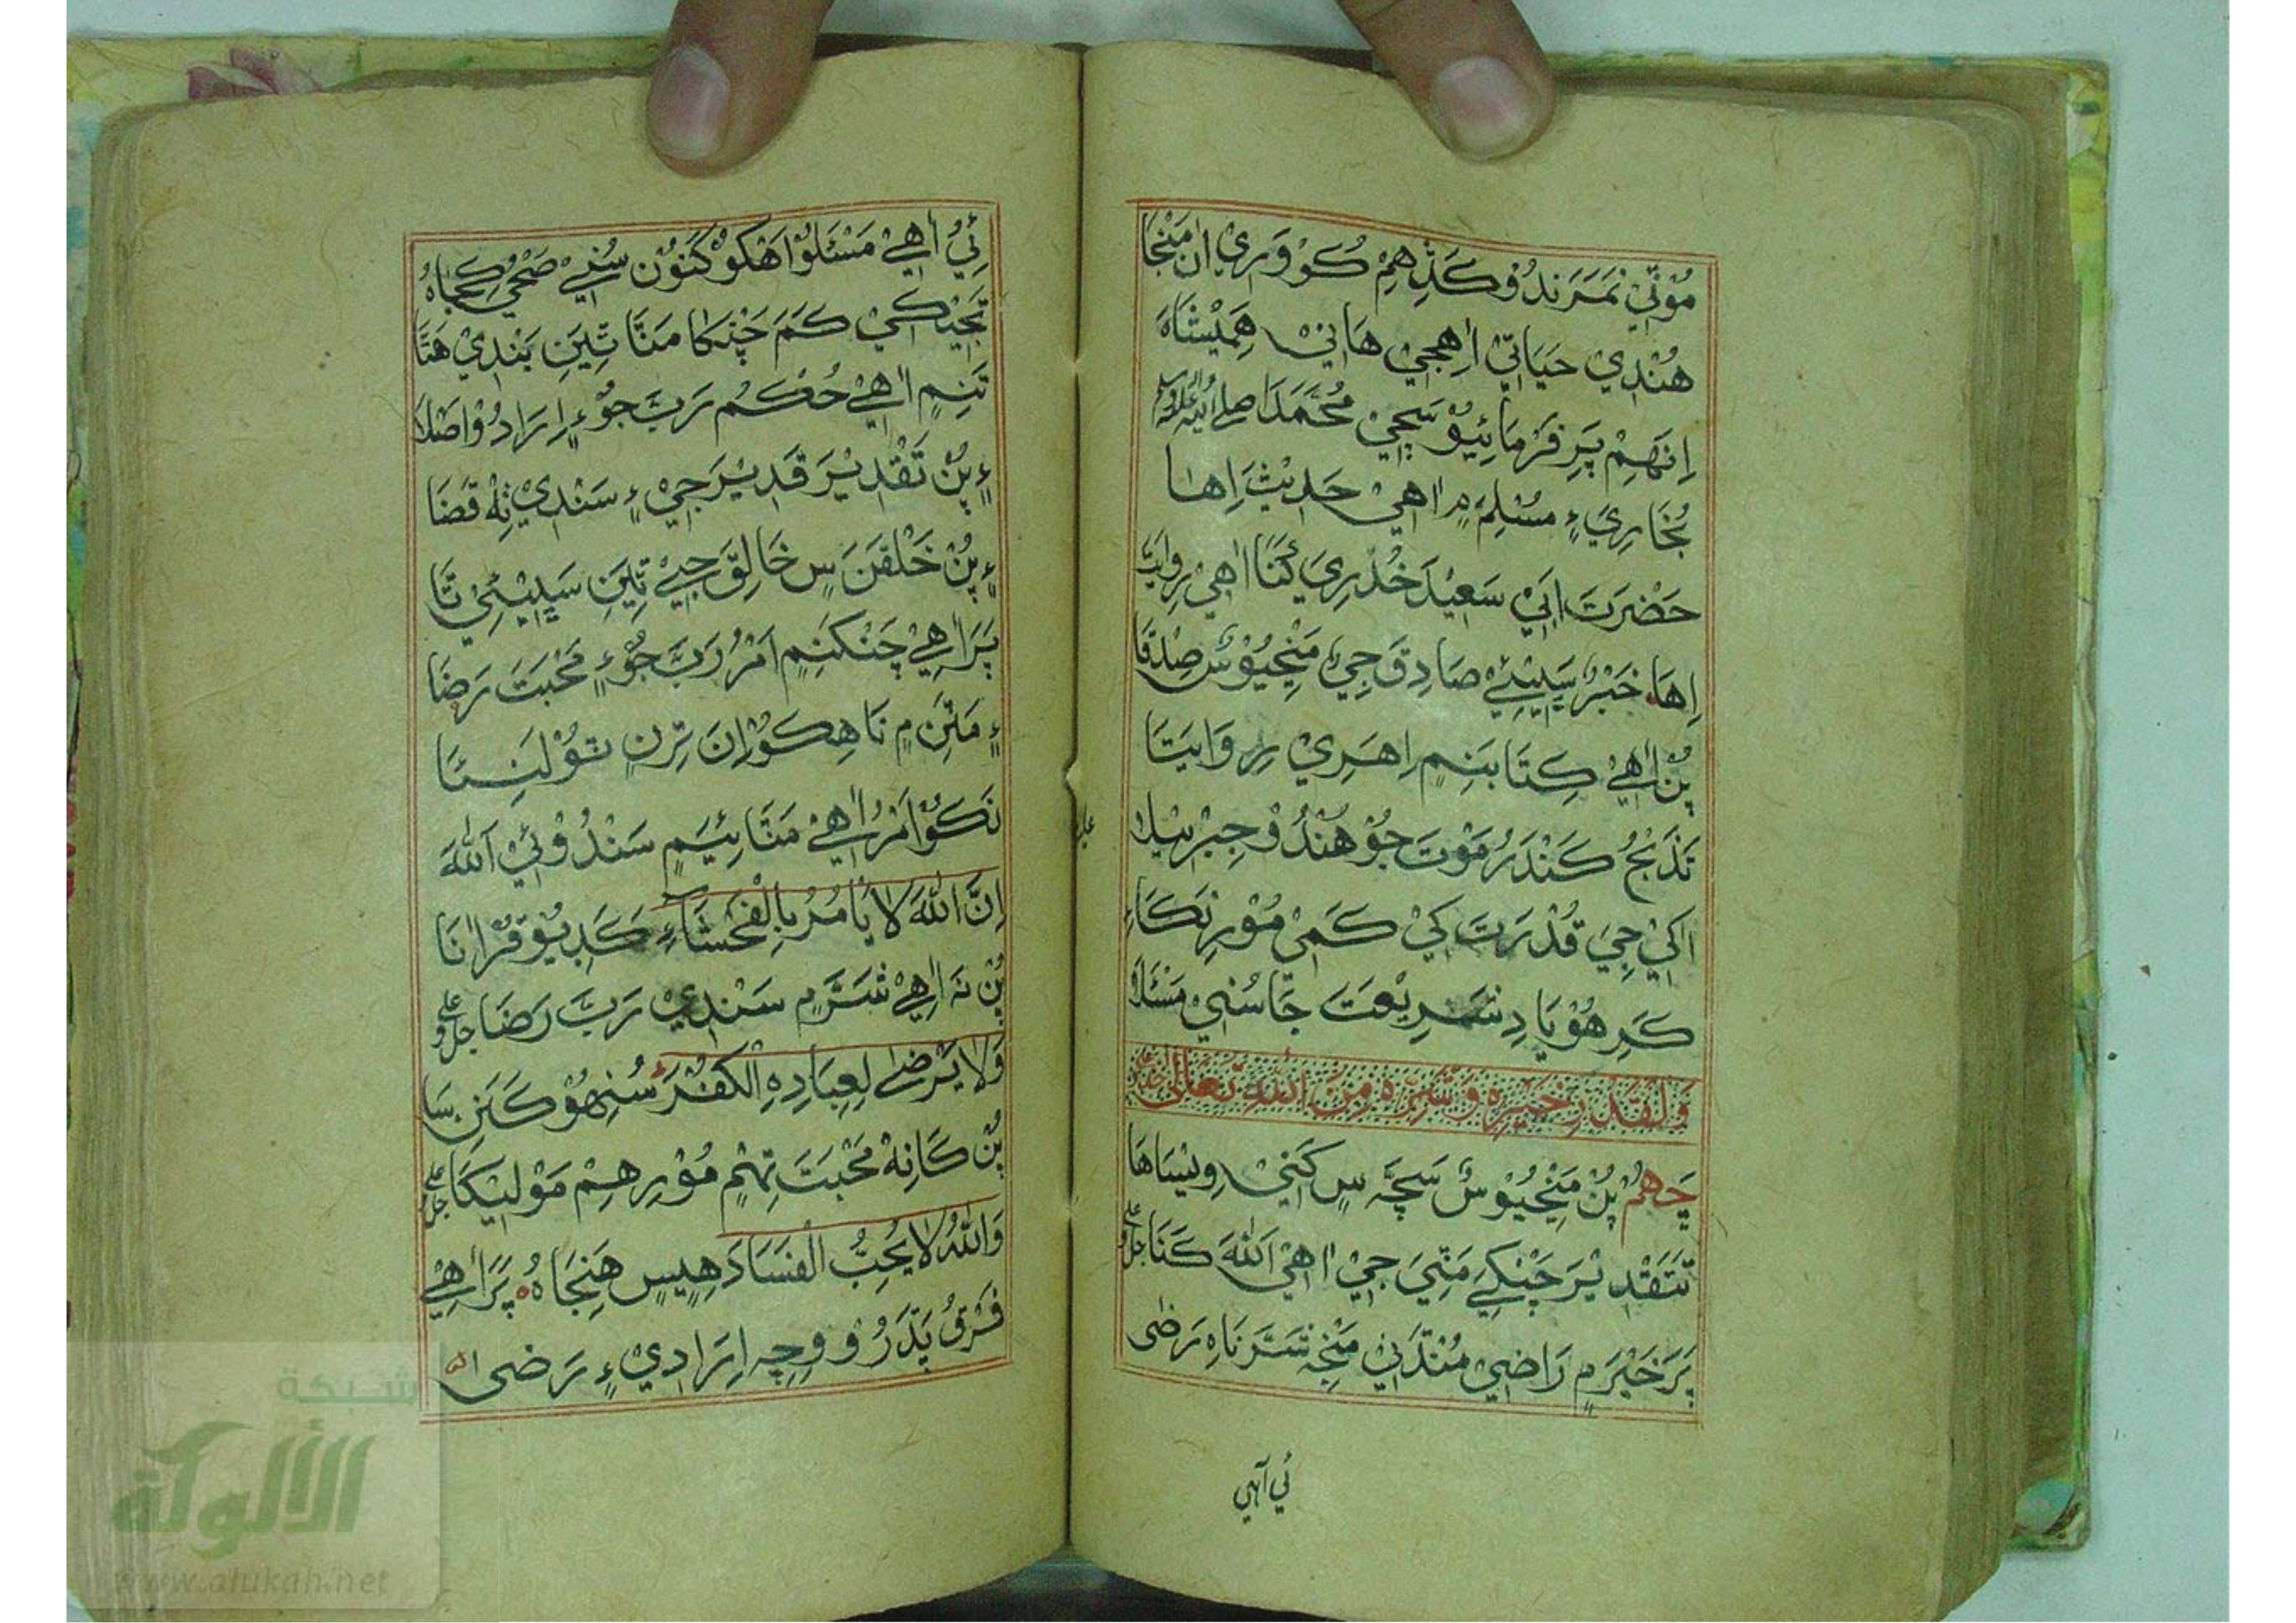 مُوْتِيْ نَمَرَنْدُوْ كَڎِهِمْ كُوْ وَرِيْ اُنْ مَنْجَا
هُنْدِيْ حَيَاتِيْ اِهِجِيْ هَانِيْ هَمِيْشَاهَ
اِنَهِمْ پَرِ فَرْمَائِيُوْ سَچِيْ مُحَمَّدَا صلي الله عليه وسلم
بُخَارِيَ ۽ مُسْلِمَ ۾ اٰهِيْ حَدِيْثَ اِهَا
حَضْرَتَ اَبِيْ سَعِيْدَ خُدْرِيَ كَنَا اٰهِيْ رِوَايَتَا
اِهَا خَبَرَ سَڀِيْئِيْ صَادِقَ جِيْ مَنِجِيُوْسْ صِدْقَا
پُنْ اٰهِيْ كِتَابَنِمِ اِهَرِيْ رِوَايَتَا
تَذَبْحُ كَنْدَرُ مَوْتَ جُوْ هُنْدُوْ جِبْرَئِيْلَا
اَكِيْ جِيْ قُدْرَتَ كِيْ كَمِيْ مُوْرِ نَكَاءِ
كَرِ هُوْ يَادِ شَرِيْعَتَ جَا سُنِيْ مَسْئَلَا
وَالْقَدْرِ خَيْرِهٖ وَشَرِّهٖ مِنَ اللّٰهِ تَعَالٰى
چَهُمْ پُنْ مَنِجِيُوْسْ سَچَهْ سِ كَنِيْ وِيْسَاهَا
تَتَقْدِيْرَ چَنْكِيْ مَنِيَ جِيْ اٰهِيْ اَللّٰهَ كَنَا جل علي
پَرَ خَيْرَ ۾ رَاضِيْ مُنْڎَنِيْ مَنْجِهْ شَرَ نَاهِ رَضٰى
ئِيْ آهي
ئِيُ اٰهِيْ مَسْئَلُوْ اَهْكُوْ كَنُوْنْ سُنِيْ صَحِيْ كِجَاهُ
تَجِيْ كِيْ كَمَ چَنْكَا مَنَا تِيَنِ بَنْدِيْ هَتَا
تَنِمِ اٰهِيْ حُكْمُ رَبَّ جُوْ ۽ اِرَادُوْ اَصْلَا
۽ پُنْ تَقْدِيْرَ قَدِيْرَ جِيْ ۽ سَنْدِيْ تِهْ قَضَا
۽ پُنْ خَلْقَنَ سِ خَالِقَ جِيْ تِيَنِ سَڀِيْئِيْ تَا
پَرَ اٰهِيْ چَنْكَنِمِ اَمْرُ رَبَّ جُوْ ۽ مَحْبَتَ رَضَا
۽ مَنِنِ ۾ نَاهِ هِكُوْ اِنَ تِرِنِ تُوْلَنِئَا
نَكُوْ اَمْرُ اٰهِيْ مَنَائِيَمِ سَنْدُوْ ئِيْ اَللّٰهَ
اِنَّ اللّٰهَ لَا يَأْمُرُ بِالْفَحْشَاۤءِ كَڎِيُوْ قُرْاٰنَا
پُنْ نَه اٰهِيْ شَرَّ ۾ سَنْدِيْ رَبَّ رَضَا جل وعلي
وَلَا يَرْضٰى لِعِبَادِهِ الْكُفْرَ سُنِهُوْ كَنَنِ سَا
پُنْ كَانِهْ مَحْبَتَ تِهِمْ مُوْرِ هِمْ مَوْلِيْكَا جل علي
وَاللّٰهُ لَا يُحِبُّ الْفَسَادَ هِيِيْسِ هَنِجَاهُ پَرَ اٰهِيْ
فَرْقُ پَڌَرُوْ وِچِهْ اِرَادِيْ ۽ رَضٰى
شبكة
الألوكة
www.alukah.net